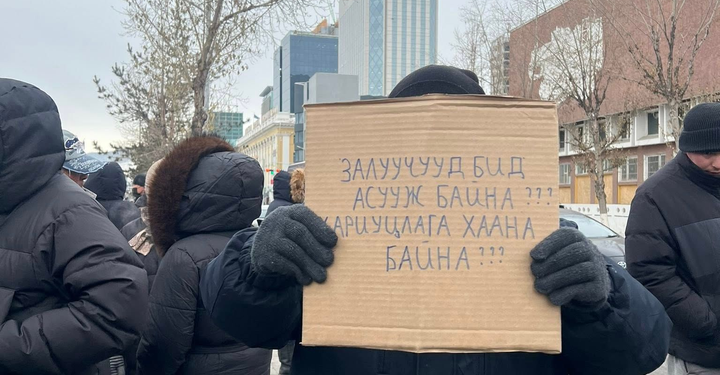 ЗАЛУУЧУУД БИД
АСУУЖ БАЙНА ???
ХАРИУЦЛАГА ХААНА
БАЙНА ???